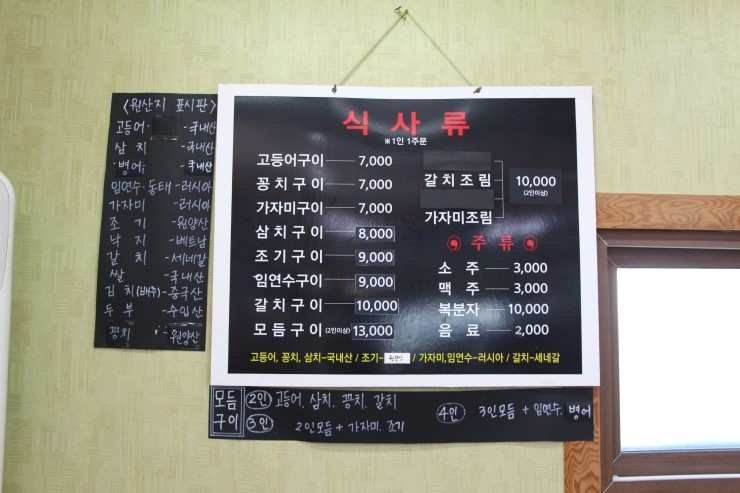 <원산지 표시판>
고등어 -국내산
삼치 -국내산
병어 -국내산
임연수·동태-러시아
가자미 -러시아
조기 -원양산
낙지 -베트남
갈치 -세네갈
쌀 -국내산
김치(배추)-중국산
두부 -수입산
꽁치 -원양산
식사류
※1인 1주문
고등어구이 7,000
꽁치구이 7,000
가자미구이 7,000
삼치구이 8,000
조기구이 9,000
임연수구이 9,000
갈치구이 10,000
모듬구이 (2인이상) 13,000
갈치조림
가자미조림
10,000
(2인이상)
주류
소주 3,000
맥주 3,000
복분자 10,000
음료 2,000
고등어, 꽁치, 삼치-국내산 / 조기-원양산 / 가자미,임연수-러시아 / 갈치-세네갈
모듬구이
2인 고등어. 삼치. 꽁치. 갈치
3인 2인모듬 + 가자미. 조기
4인 3인모듬 + 임연수. 병어